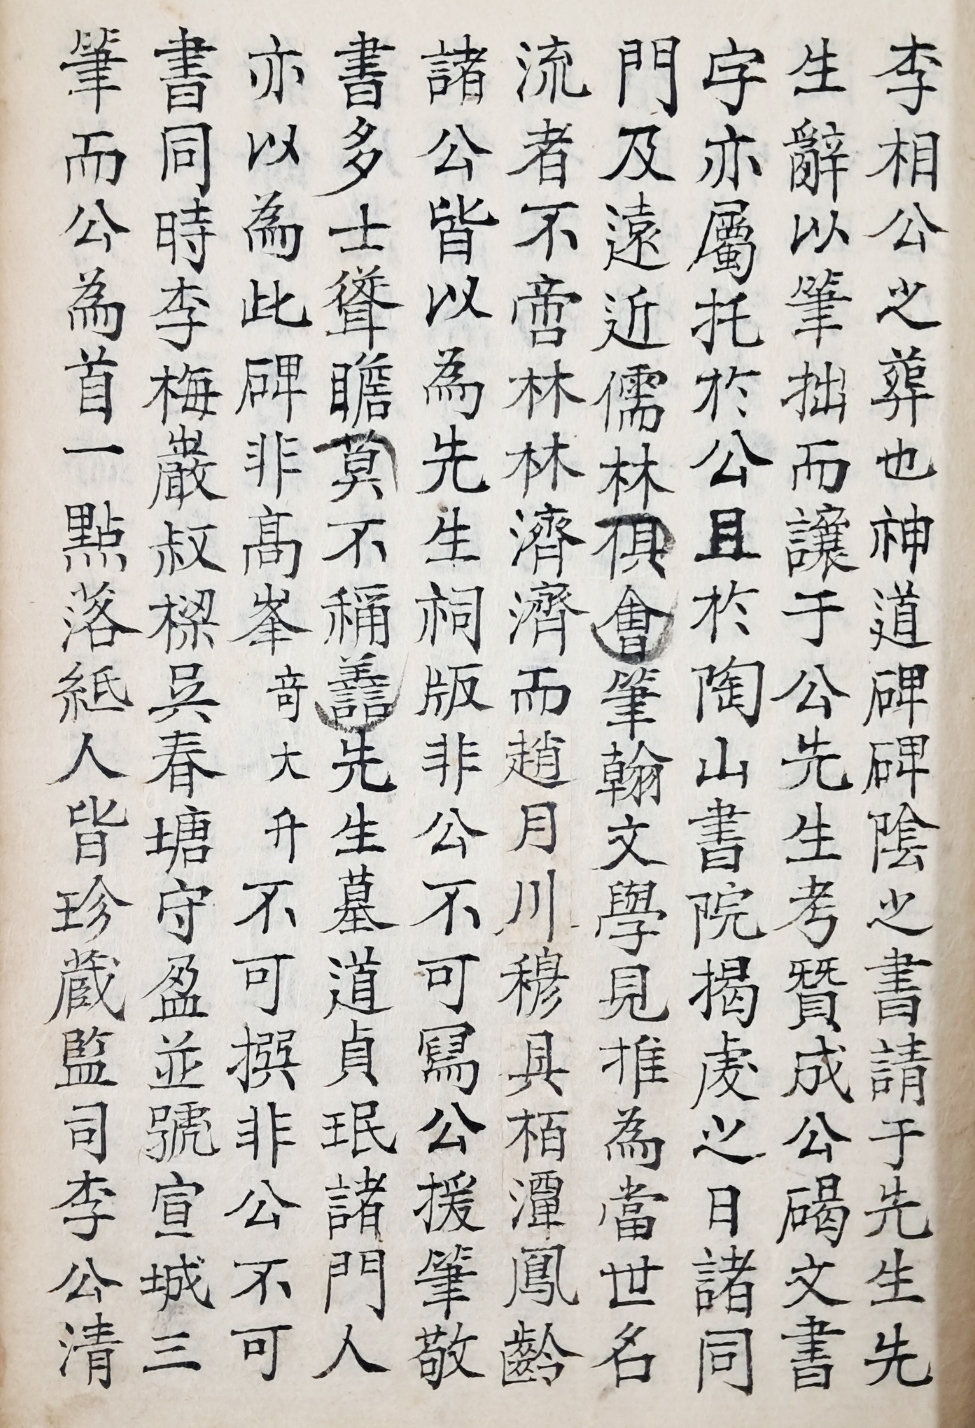 李相公之葬也神道碑碑陰之書請于先生先
生辭以筆拙而讓于公先生考贊成公碣文書
字亦屬托於公且於陶山書院揭虔之日諸同
門及遠近儒林俱會筆翰文學見推為當世名
流者不啻林林濟濟而趙月川穆具栢潭鳳齡
諸公皆以為先生祠版非公不可寫公援筆敬
書多士聳瞻莫不稱譱先生墓道貞珉諸門人
亦以為此碑非高峯竒大升不可撰非公不可
書同時李梅巖叔樑吳春塘守盈並號宣城三
筆而公為首一點落紙人皆珍蔵監司李公清